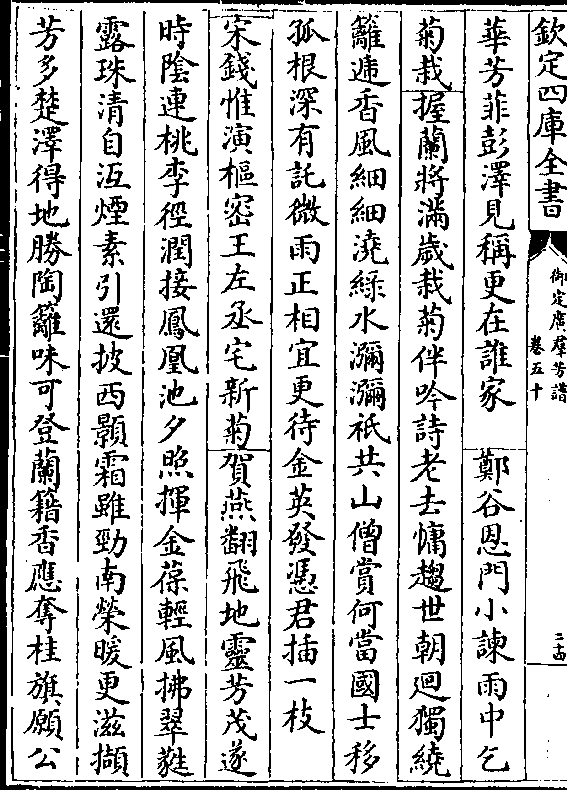 欽定四庫全書
御定廣羣芳譜
卷五十
二十四
華芳菲彭澤見稱更在誰家　鄭谷恩門小諫雨中乞
菊栽握蘭將滿歲栽菊伴吟詩老去慵趨世朝迴獨繞
籬遞香風細細澆綠水瀰瀰祇共山僧賞何當國士移
孤根深有託微雨正相宜更待金英發憑君插一枝
宋錢惟演樞密王左丞宅新菊賀燕翻飛地靈芳茂遂
時陰連桃李徑潤接鳳凰池夕照揮金葆輕風拂翠蕤
露珠清自沍煙素引還披西顥霜雖勁南榮暖更滋擷
芳多楚澤得地勝陶籬味可登蘭籍香應奪桂旗願公